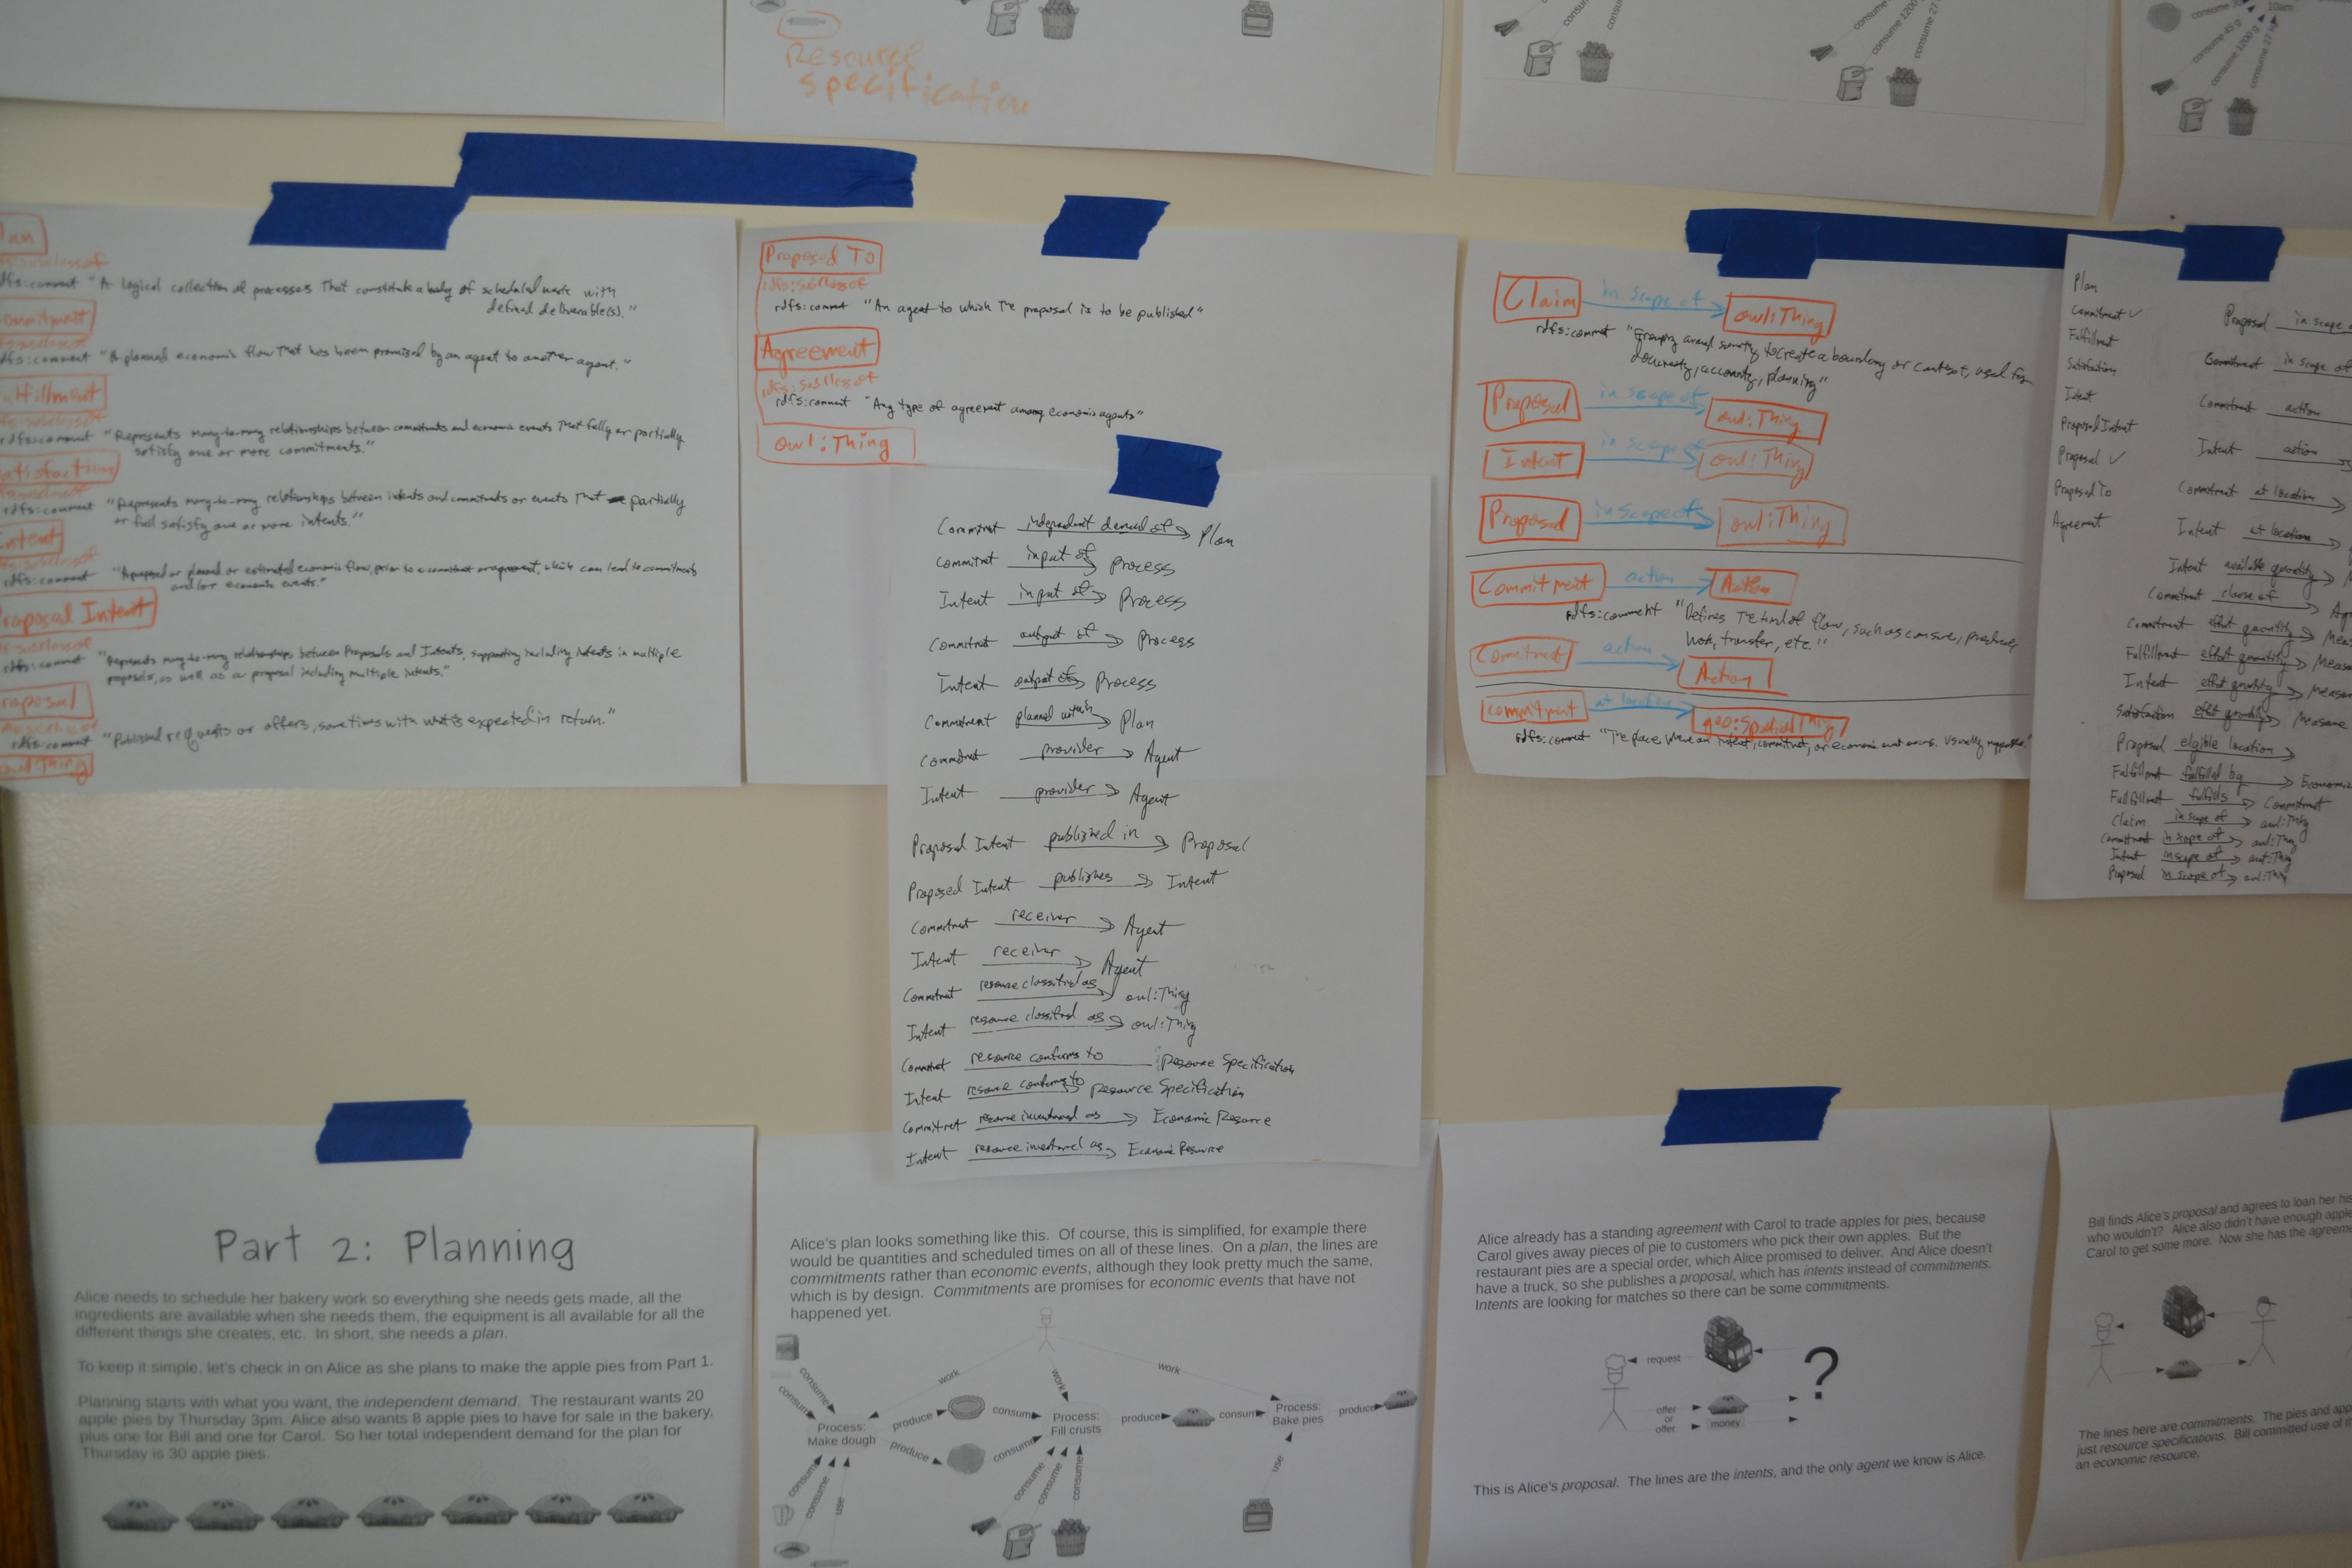 Resource
specification
consume 1200 g
consume 27
10am
consume 45 g
consume 1200 g
consume 27 kg
lan
rdfs:subclassof
rdfs:comment "A logical collection of processes that constitute a body of scheduled work with
defined deliverable(s)."
ommitment
rdfs:comment "A planned economic flow that has been promised by an agent to another agent."
ulfillment
rdfs:comment "Represents many-to-many relationships between commitments and economic events that fully or partially
satisfy one or more commitments."
atisfaction
rdfs:comment "Represents many-to-many relationships between intents and commitments or events that partially
or full satisfy one or more intents."
Intent
rdfs:comment "A proposed or planned or estimated economic flow, prior to a commitment or agreement, which can lead to commitments
and/or economic events."
Proposed Intent
rdfs:comment "Represents many-to-many relationships between Proposals and Intents, supporting including intents in multiple
proposals, as well as a proposal including multiple intents."
roposal
rdfs:comment "Published requests or offers, sometimes with what is expected in return."
owl:Thing
Proposed To
rdfs:subclassof
rdfs:comment "An agent to which the proposal is to be published"
Agreement
rdfs:subclassof
rdfs:comment "Any type of agreement among economic agents"
owl:Thing
Commitment independent demand of Plan
Commitment input of Process
Intent input of Process
Commitment output of Process
Intent output of Process
Commitment planned within Plan
Commitment provider Agent
Intent provider Agent
Proposed Intent published in Proposal
Proposed Intent publishes Intent
Commitment receiver Agent
Intent receiver Agent
Commitment resource classified as owl:Thing
Intent resource classified as owl:Thing
Commitment resource conforms to Resource Specification
Intent resource conforms to Resource Specification
Commitment resource inventoried as Economic Resource
Intent resource inventoried as Economic Resource
Claim in scope of owl:Thing
rdfs:comment "Grouping around something to create a boundary or context, used for
documenting, accounting, planning"
Proposal in scope of owl:Thing
Intent in scope of owl:Thing
Proposed in scope of owl:Thing
Commitment action Action
rdfs:comment "Defines the kind of flow, such as consume, produce,
work, transfer, etc."
Commitment action Action
Commitment at location geo:SpatialThing
rdfs:comment "The place where an intent, commitment, or economic event occurs. Usually mappable."
Plan
Commitment ✓
Fulfillment
Satisfaction
Intent
Proposed Intent
Proposal ✓
Proposed To
Agreement
Proposed in scope o
Commitment in scope of
Commitment action
Intent action
Commitment at location
Intent at location
Intent available quantity
Commitment clause of Ag
Commitment effort quantity Meas
Fulfillment effort quantity Measu
Intent effort quantity Meas
Satisfaction effort quantity Measure
Proposal eligible location
Fulfillment fulfilled by Economic
Fulfillment fulfills Commitment
Claim in scope of owl:Thing
Commitment in scope of owl:Thing
Intent in scope of owl:Thing
Proposed in scope of owl:Thing
Part 2: Planning
Alice needs to schedule her bakery work so everything she needs gets made, all the
ingredients are available when she needs them, the equipment is all available for all the
different things she creates, etc. In short, she needs a plan.
To keep it simple, let's check in on Alice as she plans to make the apple pies from Part 1.
Planning starts with what you want, the independent demand. The restaurant wants 20
apple pies by Thursday 3pm. Alice also wants 8 apple pies to have for sale in the bakery,
plus one for Bill and one for Carol. So her total independent demand for the plan for
Thursday is 30 apple pies.
Alice's plan looks something like this. Of course, this is simplified, for example there
would be quantities and scheduled times on all of these lines. On a plan, the lines are
commitments rather than economic events, although they look pretty much the same,
which is by design. Commitments are promises for economic events that have not
happened yet.
consume
consume
work
work
work
Process:
Make dough
produce
produce
consume
consume
Process:
Fill crusts
produce
consume
Process:
Bake pies
produce
consume
consume
use
consume
consume
consume
use
Alice already has a standing agreement with Carol to trade apples for pies, because
Carol gives away pieces of pie to customers who pick their own apples. But the
restaurant pies are a special order, which Alice promised to deliver. And Alice doesn't
have a truck, so she publishes a proposal, which has intents instead of commitments.
Intents are looking for matches so there can be some commitments.
request
?
offer
or
offer
money
This is Alice's proposal. The lines are the intents, and the only agent we know is Alice.
Bill finds Alice's proposal and agrees to loan her his
who wouldn't? Alice also didn't have enough apple
Carol to get some more. Now she has the agreeme
The lines here are commitments. The pies and app
just resource specifications. Bill committed use of th
an economic resource.